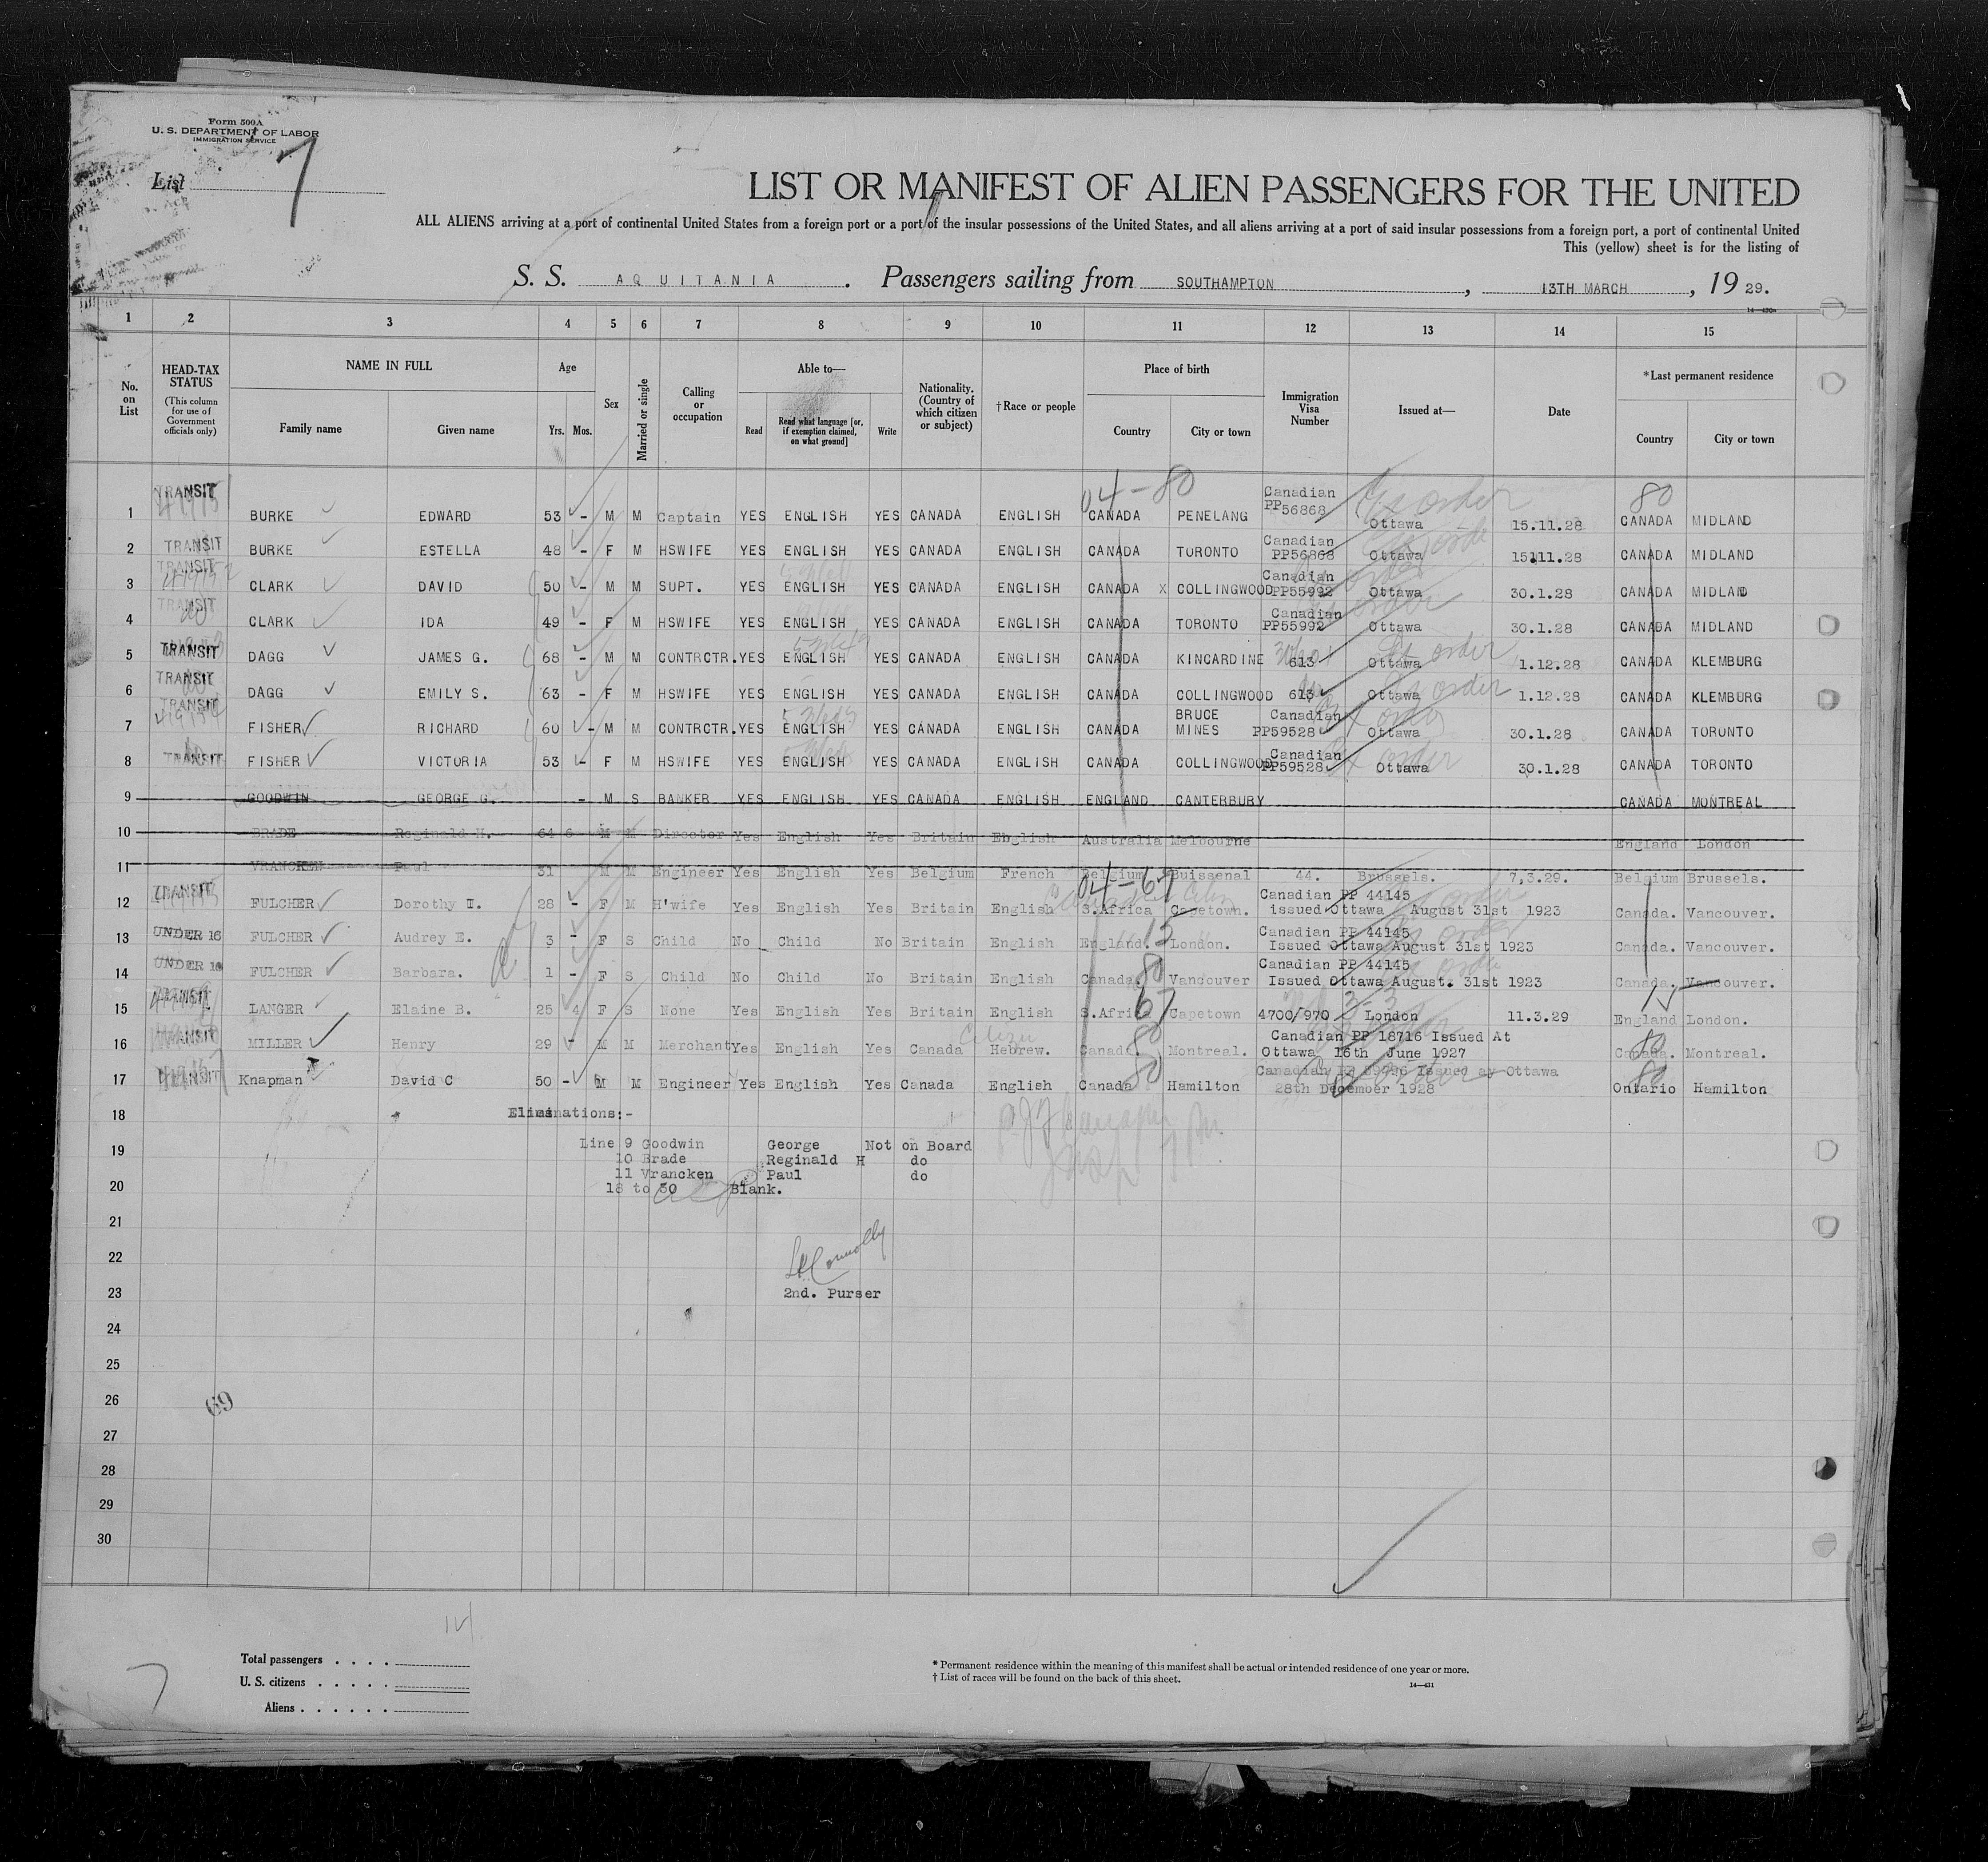 Form 500A
U. S. DEPARTMENT OF LABOR
IMMIGRATION SERVICE
List 7
LIST OR MANIFEST OF ALIEN PASSENGERS FOR THE UNITED
ALL ALIENS arriving at a port of continental United States from a foreign port or a port of the insular possessions of the United States, and all aliens arriving at a port of said insular possessions from a foreign port, a port of continental United
This (yellow) sheet is for the listing of
S. S. AQUITANIA. Passengers sailing from SOUTHAMPTON, 13TH MARCH, 19 29.
1 2 3 4 5 6 7 8 9 10 11 12 13 14 15
No. on List
HEAD-TAX STATUS (This column for use of Government officials only)
NAME IN FULL
Family name Given name
Age
Yrs. Mos.
Sex
Married or single
Calling or occupation
Able to—
Read Read what language [or, if exemption claimed, on what ground] Write
Nationality. (Country of which citizen or subject)
†Race or people
Place of birth
Country City or town
Immigration Visa Number
Issued at—
Date
*Last permanent residence
Country City or town
04-80 80
1 TRANSIT BURKE EDWARD 53 - M M Captain YES ENGLISH YES CANADA ENGLISH CANADA PENELANG Canadian PP56868 Ottawa 15.11.28 CANADA MIDLAND
2 TRANSIT BURKE ESTELLA 48 - F M HSWIFE YES ENGLISH YES CANADA ENGLISH CANADA TORONTO Canadian PP56868 Ottawa 15.11.28 CANADA MIDLAND
3 TRANSIT CLARK DAVID 50 - M M SUPT. YES ENGLISH YES CANADA ENGLISH CANADA X COLLINGWOOD Canadian PP55992 Ottawa 30.1.28 CANADA MIDLAND
4 TRANSIT CLARK IDA 49 - F M HSWIFE YES ENGLISH YES CANADA ENGLISH CANADA TORONTO Canadian PP55992 Ottawa 30.1.28 CANADA MIDLAND
5 TRANSIT DAGG JAMES G. 68 - M M CONTRCTR. YES ENGLISH YES CANADA ENGLISH CANADA KINCARDINE 613 Ottawa 1.12.28 CANADA KLEMBURG
6 TRANSIT DAGG EMILY S. 63 - F M HSWIFE YES ENGLISH YES CANADA ENGLISH CANADA COLLINGWOOD 613 Ottawa 1.12.28 CANADA KLEMBURG
7 TRANSIT FISHER RICHARD 60 - M M CONTRCTR. YES ENGLISH YES CANADA ENGLISH CANADA BRUCE MINES Canadian PP59528 Ottawa 30.1.28 CANADA TORONTO
8 TRANSIT FISHER VICTORIA 53 - F M HSWIFE YES ENGLISH YES CANADA ENGLISH CANADA COLLINGWOOD Canadian PP59528 Ottawa 30.1.28 CANADA TORONTO
9 GOODWIN GEORGE G. - M S BANKER YES ENGLISH YES CANADA ENGLISH ENGLAND CANTERBURY CANADA MONTREAL
10 BRADE Reginald H. 64 6 M M Director Yes English Yes Britain English Australia Melbourne England London
11 VRANCKEN Paul 31 M M Engineer Yes English Yes Belgium French Belgium Buissenal 44. Brussels. 7.3.29. Belgium Brussels.
12 TRANSIT FULCHER Dorothy I. 28 - F M H'wife Yes English Yes Britain English S.Africa Capetown. Canadian PP 44145 issued Ottawa August 31st 1923 Canada. Vancouver.
13 UNDER 16 FULCHER Audrey E. 3 - F S Child No Child No Britain English England. London. Canadian PP 44145 Issued Ottawa August 31st 1923 Canada. Vancouver.
14 UNDER 16 FULCHER Barbara. 1 - F S Child No Child No Britain English Canada. Vancouver Canadian PP 44145 Issued Ottawa August. 31st 1923 Canada. Vancouver.
15 TRANSIT LANGER Elaine B. 25 4 F S None Yes English Yes Britain English S.Afri 67 Capetown 4700/970 London 11.3.29 England London.
16 TRANSIT MILLER Henry 29 - M M Merchant Yes English Yes Canada Hebrew. Canada 80 Montreal. Canadian PP 18716 Issued At Ottawa 16th June 1927 Canada. Montreal.
17 TRANSIT Knapman David C 50 - M M Engineer Yes English Yes Canada English Canada 80 Hamilton 28th December 1928 Ontario Hamilton
18 Eliminations:-
19 Line 9 Goodwin George Not on Board
10 Brade Reginald H do
11 Vrancken Paul do
20 18 to 30 Blank.
21
22 Connolly
23 2nd. Purser
24
25
26
69
27
28
29
30
14
Total passengers . . . .
U. S. citizens . . . . .
Aliens . . . . . .
7
* Permanent residence within the meaning of this manifest shall be actual or intended residence of one year or more.
† List of races will be found on the back of this sheet.
14—431